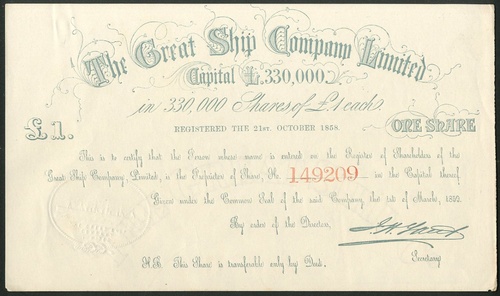 The Great Ship Company Limited
Capital £.330,000.
in 330,000 Shares of £1 each
REGISTERED THE 21ST. OCTOBER 1858.
£1.
ONE SHARE
This is to certify that the Person whose name is entered on the Register of Shareholders of the
Great Ship Company, Limited, is the Proprietor of Share, No. 149209 in the Capital thereof
Given under the Common Seal of the said Company the 1st of March, 1859.
By order of the Directors,
Secretary
N.B. This Share is transferable only by Deed.